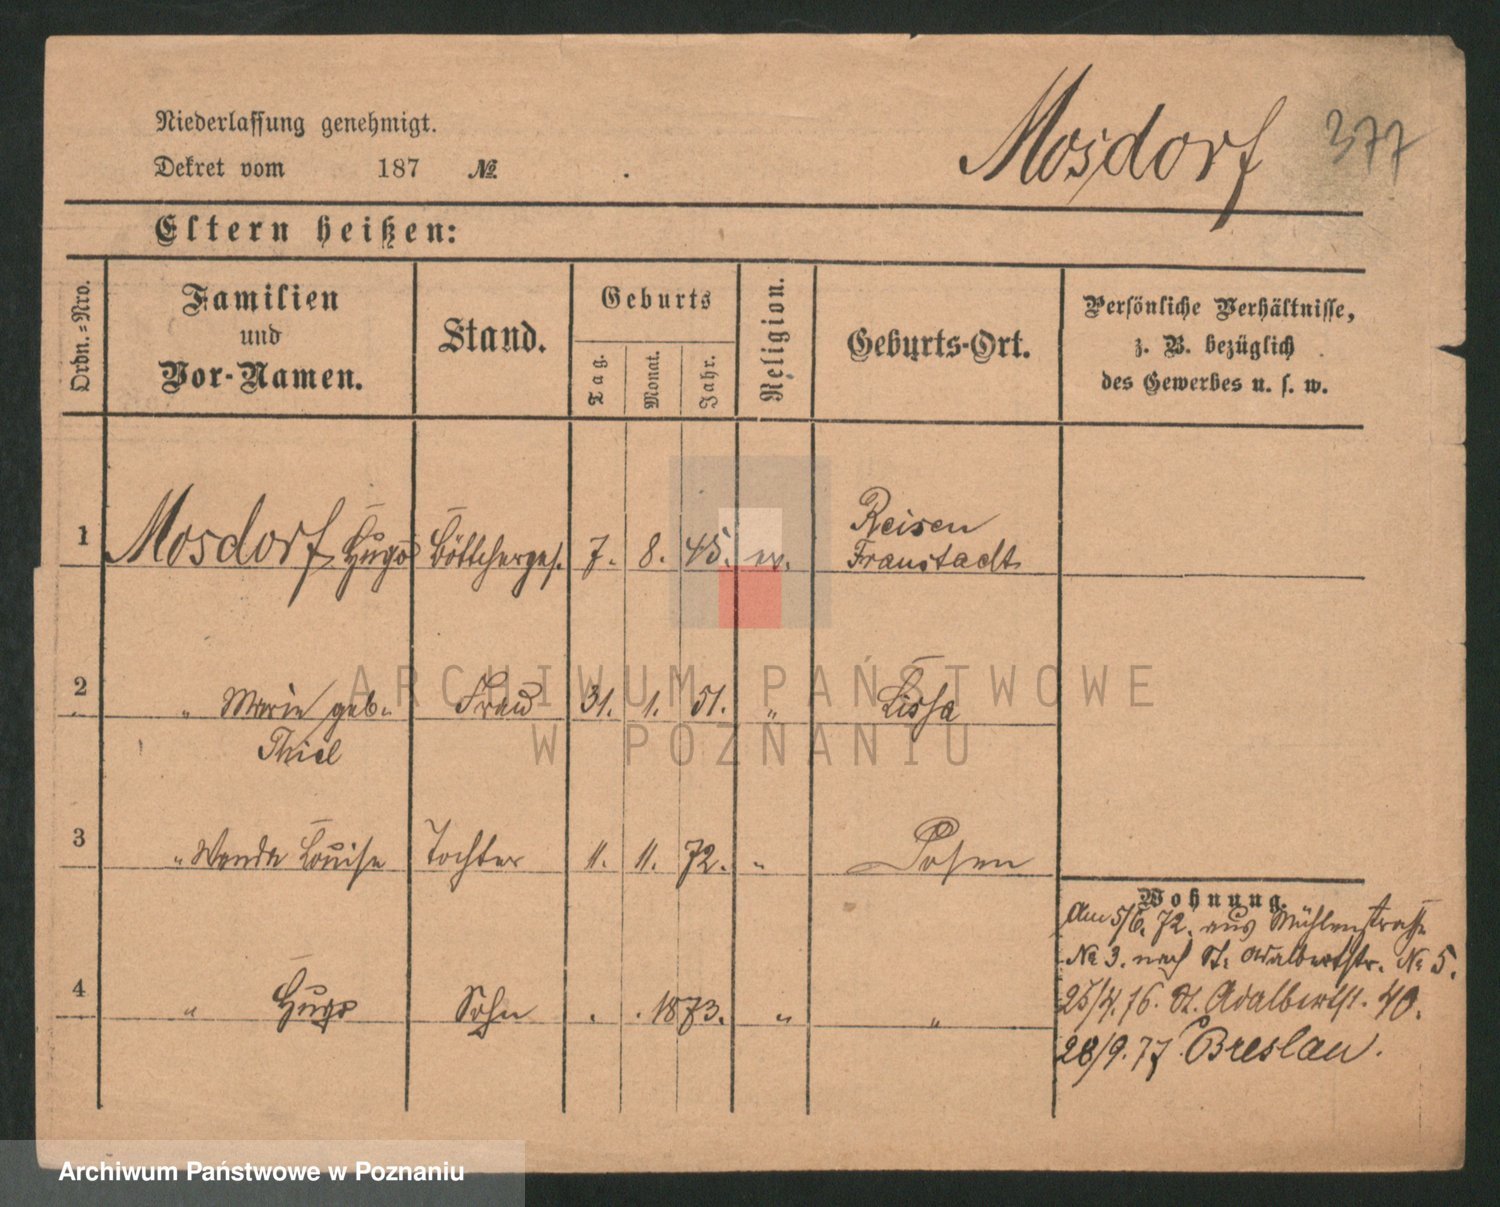 Niederlassung genehmigt.
Mosdorf 377
Dekret vom 187 №
Eltern heißen:
Ordn.-Nro.
Familien
und
Vor-Namen.
Stand.
Geburts
Tag.
Monat.
Jahr.
Religion.
Geburts-Ort.
Persönliche Verhältnisse,
z. B. bezüglich
des Gewerbes u. s. w.
1 Mosdorf Hugo Böttcherges. 7. 8. 45. ev. Reisen
Fraustadt
2 " Marie geb. Frau 31. 1. 51. " Lissa
Thiel
3 " Wanda Louise Tochter 11. 11. 72. " Posen
4 " Hugo Sohn . . 1873. " "
Wohnung.
Am 5/6. 72. aus Mühlenstraße
№ 3. nach St. Adalbertstr. № 5.
25/4. 76. St. Adalbertst. 40.
28/9. 77. Breslau.
ARCHIWUM PAŃSTWOWE
W POZNANIU
Archiwum Państwowe w Poznaniu